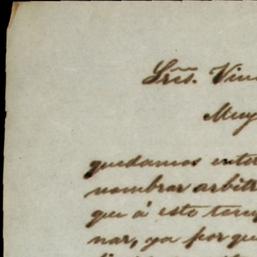 Srẽs. Vin
Muy
quedamos enter
nombrar arbitr
que á este
nar, ya por que